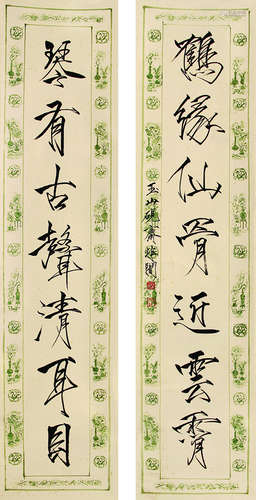 鶴緣仙骨近雲霄
琴有古聲清耳目